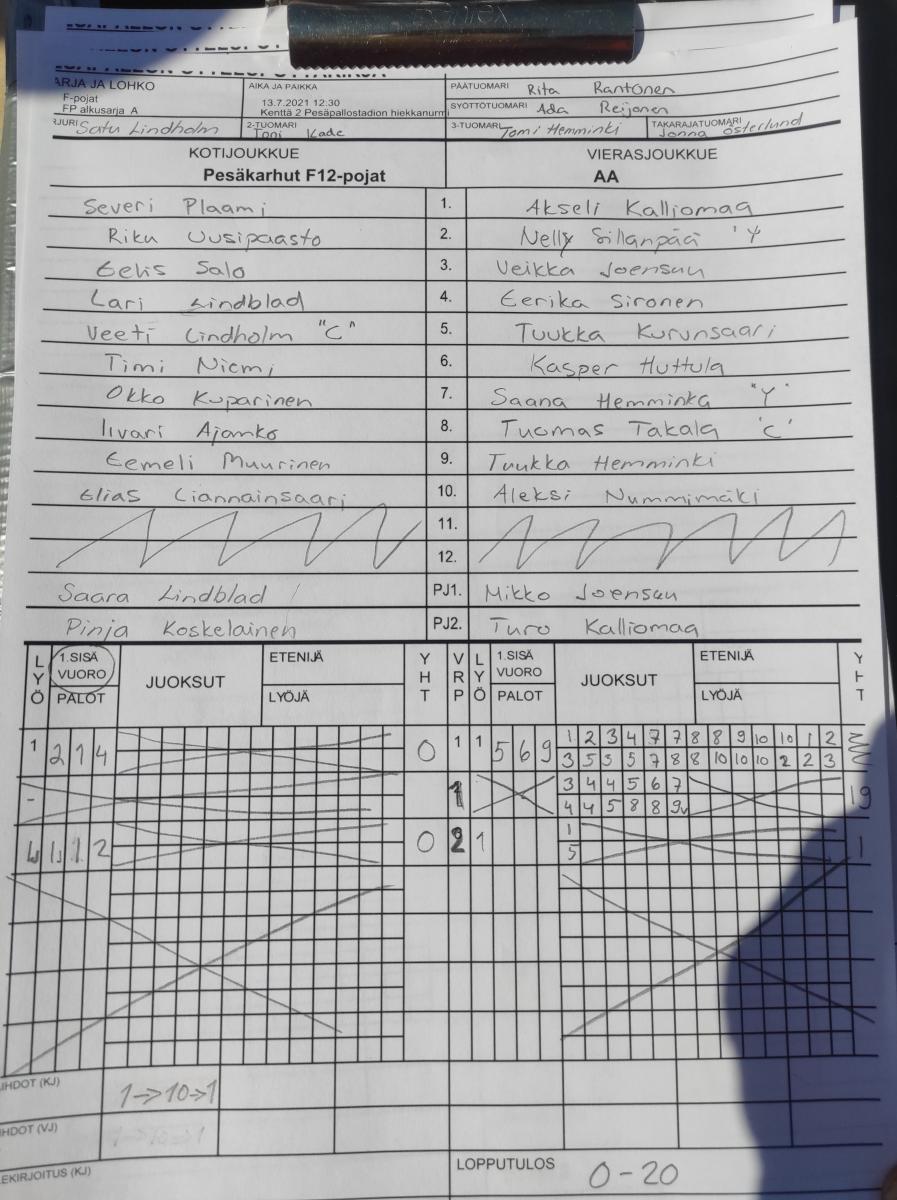 ARJA JA LOHKO
F-pojat
FP alkusarja A
AIKA JA PAIKKA
13.7.2021 12:30
Kenttä 2 Pesäpallostadion hiekkanurmi
PÄÄTUOMARI Rita Rantonen
SYÖTTÖTUOMARI Ada Reijonen
RJURI Satu Lindholm
2-TUOMARI Toni Kade
3-TUOMARI Tomi Hemminki
TAKARAJATUOMARI Jonna Österlund
KOTIJOUKKUE VIERASJOUKKUE
Pesäkarhut F12-pojat AA
Severi Plaami 1. Akseli Kalliomaa
Riku Uusipaasto 2. Nelly Sillanpää 'Y
Eelis Salo 3. Veikka Joensuu
Lari Lindblad 4. Eerika Sironen
Veeti Lindholm "C" 5. Tuukka Kurunsaari
Timi Niemi 6. Kasper Huttula
Okko Kuparinen 7. Saana Hemminka "Y"
Iivari Ajamko 8. Tuomas Takala 'C'
Eemeli Muurinen 9. Tuukka Hemminki
Elias Liannainsaari 10. Aleksi Nummimäki
11.
12.
Saara Lindblad PJ1. Mikko Joensuu
Pinja Koskelainen PJ2. Turo Kalliomaa
LYÖ 1.SISÄ VUORO PALOT JUOKSUT ETENIJÄ LYÖJÄ YHT VRP LYÖ 1.SISÄ VUORO PALOT JUOKSUT ETENIJÄ LYÖJÄ YHT
1 2 1 4 0 1 1 5 6 9 1 2 3 4 7 7 8 8 9 10 10 1 2
3 5 5 5 7 8 8 10 10 10 2 2 3
- 1 3 4 4 5 6 7 19
4 4 5 8 8 9v
1 2 0 2 1 1 1
5
IHDOT (KJ) 1→10→1
IHDOT (VJ)
EKIRJOITUS (KJ) LOPPUTULOS 0-20